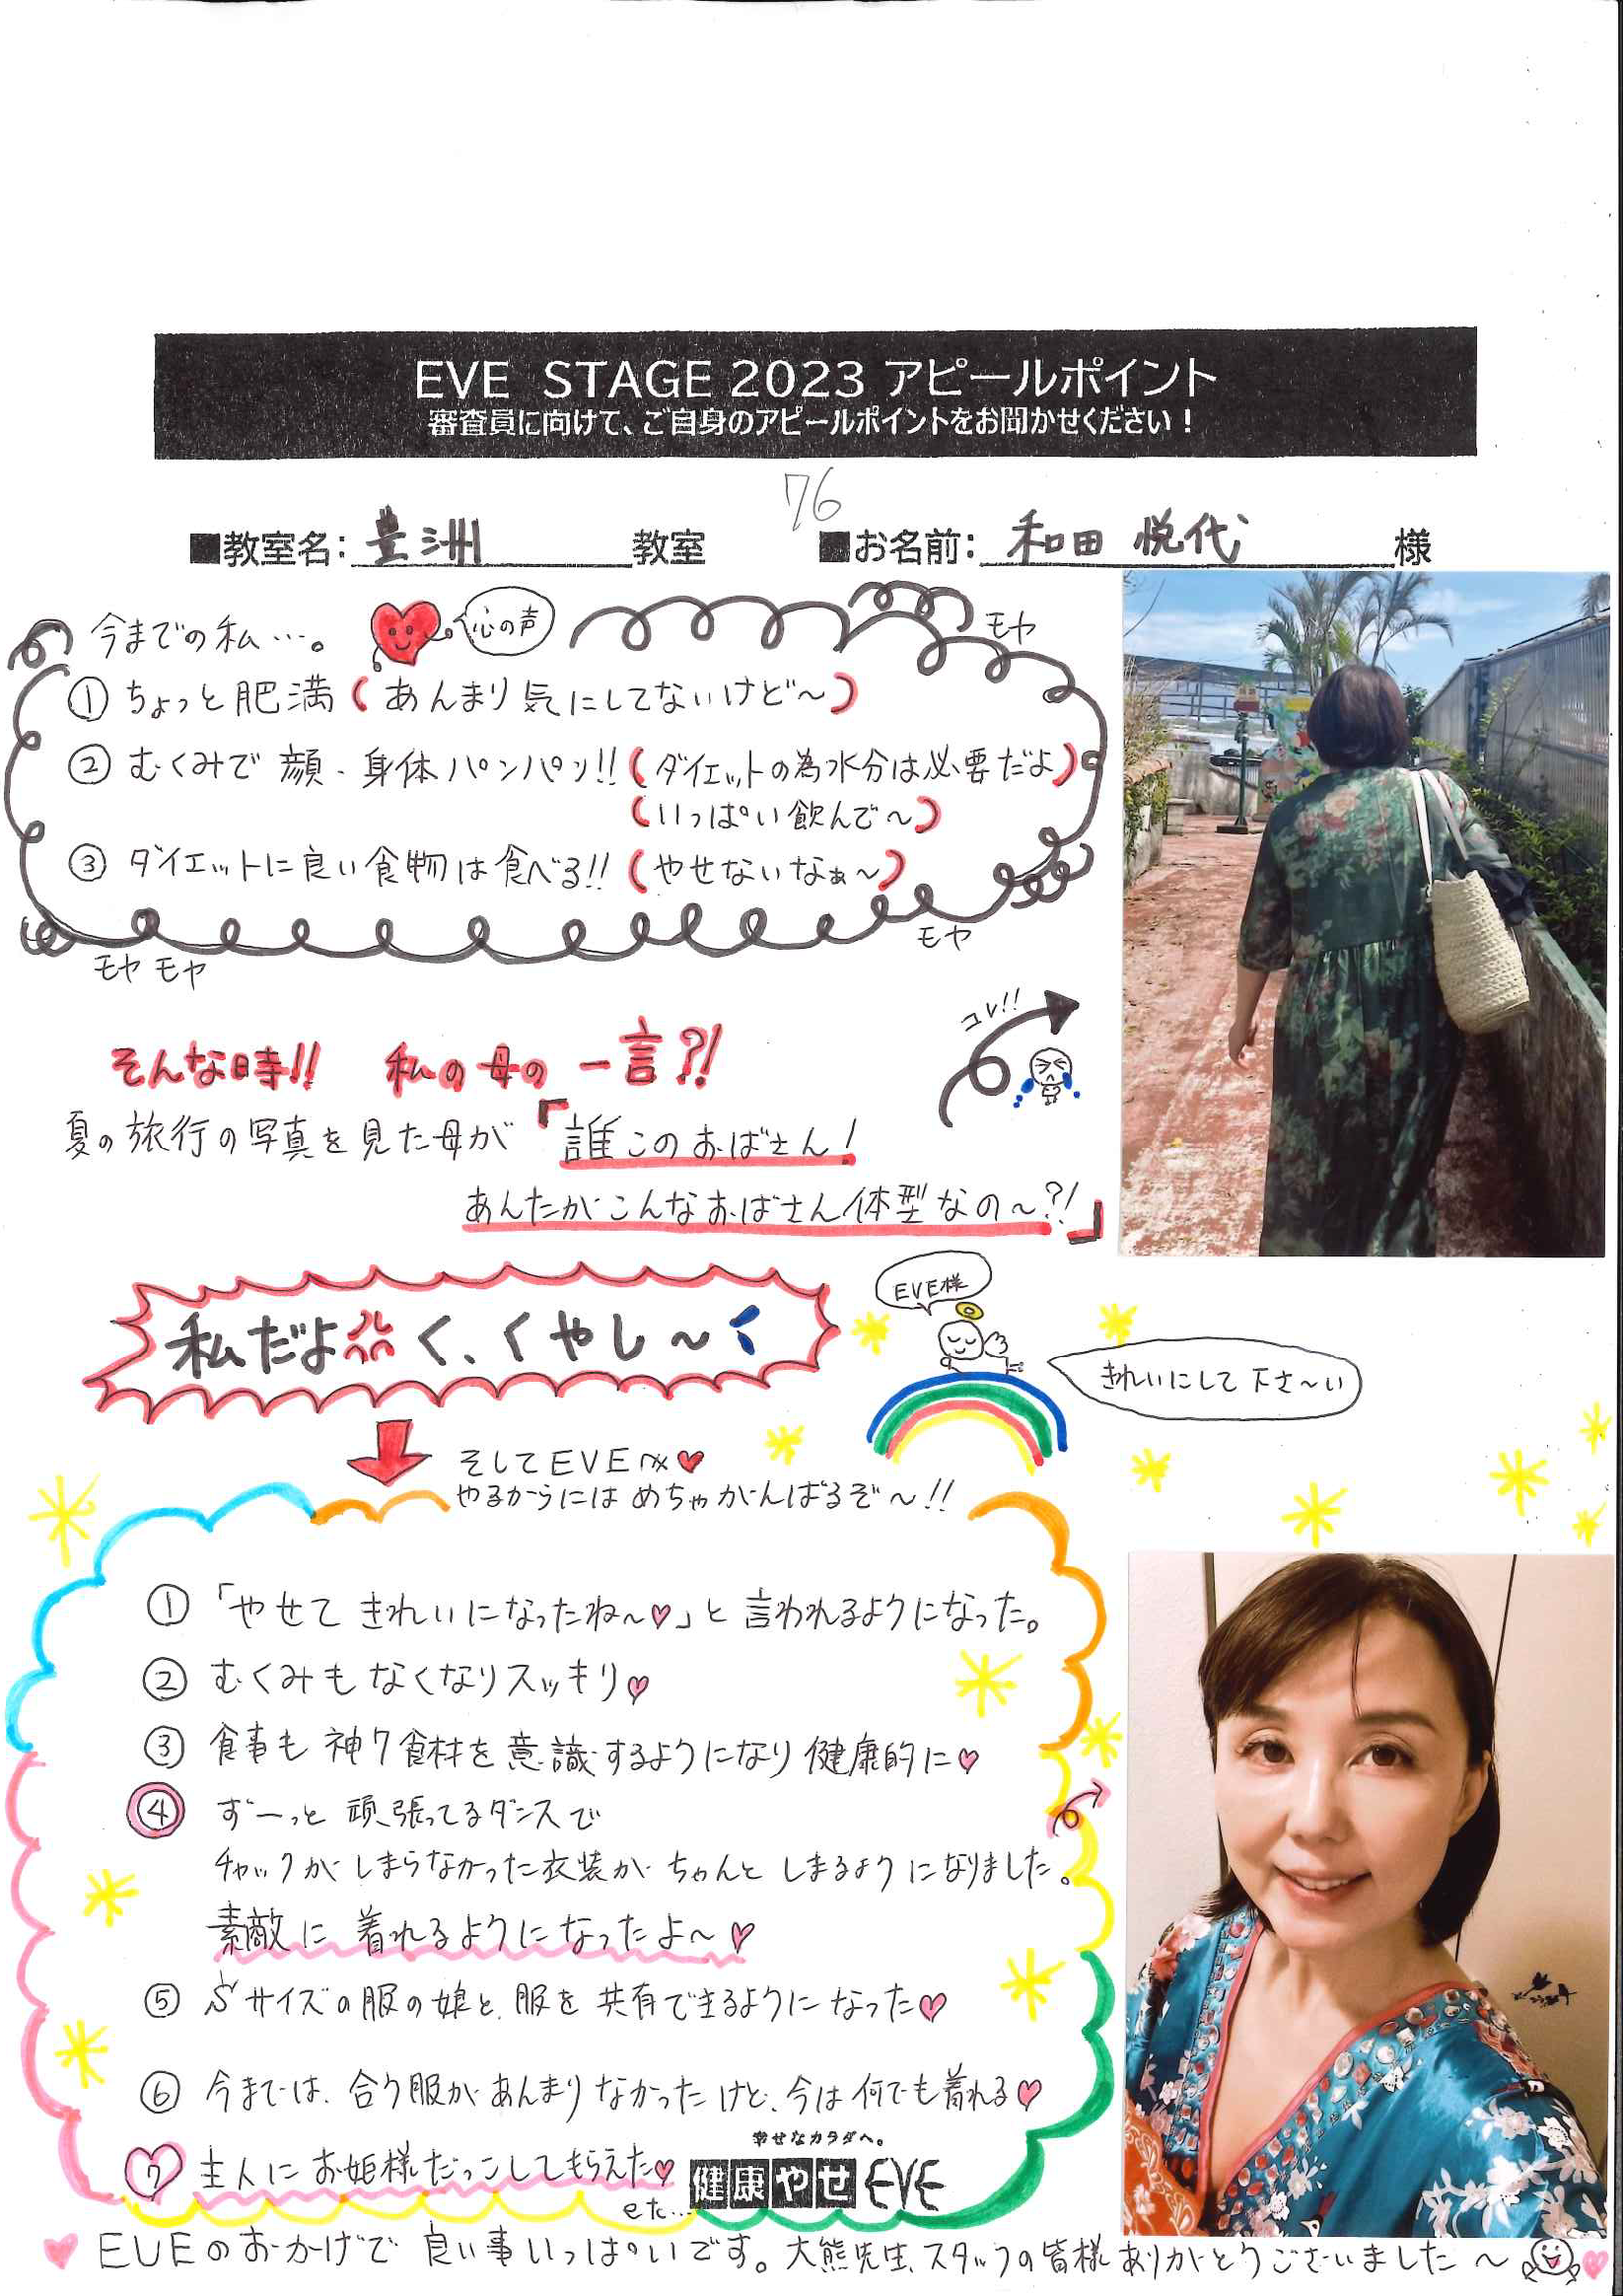 EVE STAGE 2023 アピールポイント
審査員に向けて、ご自身のアピールポイントをお聞かせください！
76
■教室名：豊洲 教室 ■お名前：和田 悦代 様
今までの私…。
心の声
モヤ
①ちょっと肥満（あんまり気にしてないけど〜）
②むくみで顔・身体パンパン!!（ダイエットの為水分は必要だよ）
（いっぱい飲んで〜）
③ダイエットに良い食物は食べる!!（やせないなぁ〜）
モヤ
モヤ モヤ
コレ!!
そんな時!! 私の母の一言?!
夏の旅行の写真を見た母が「誰このおばさん!
あんたがこんなおばさん体型なの〜?!」
EVE様
私だよ く、くやし〜
きれいにして下さ〜い
そしてEVEへ♥
やるからにはめちゃがんばるぞ〜!!
①「やせてきれいになったね〜♡」と言われるようになった。
②むくみもなくなりスッキリ♡
③食事も神7食材を意識するようになり健康的に♡
④ずーっと頑張ってるダンスで
チャックがしまらなかった衣装がちゃんとしまるようになりました。
素敵に着れるようになったよ〜♡
⑤Sサイズの服の娘と、服を共有できるようになった♡
⑥今までは、合う服があんまりなかったけど、今は何でも着れる♡
幸せなカラダへ。
⑦主人にお姫様だっこしてもらえた♡
健康やせEVE
etc...
♥EVEのおかげで良い事いっぱいです。大熊先生、スタッフの皆様ありがとうございました〜